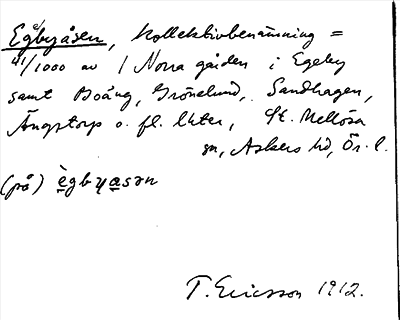 Egbyåsen, Kollektivbenämning =
41/1000 av / Norra gården i Egeby
samt Boäng, Grönelund, Sandhagen,
Ängstorp o. fl. lhter, St. Mellösa
sn, Askers hd, Ör. l.
(på) ègbyasən
T. Ericsson 1912.